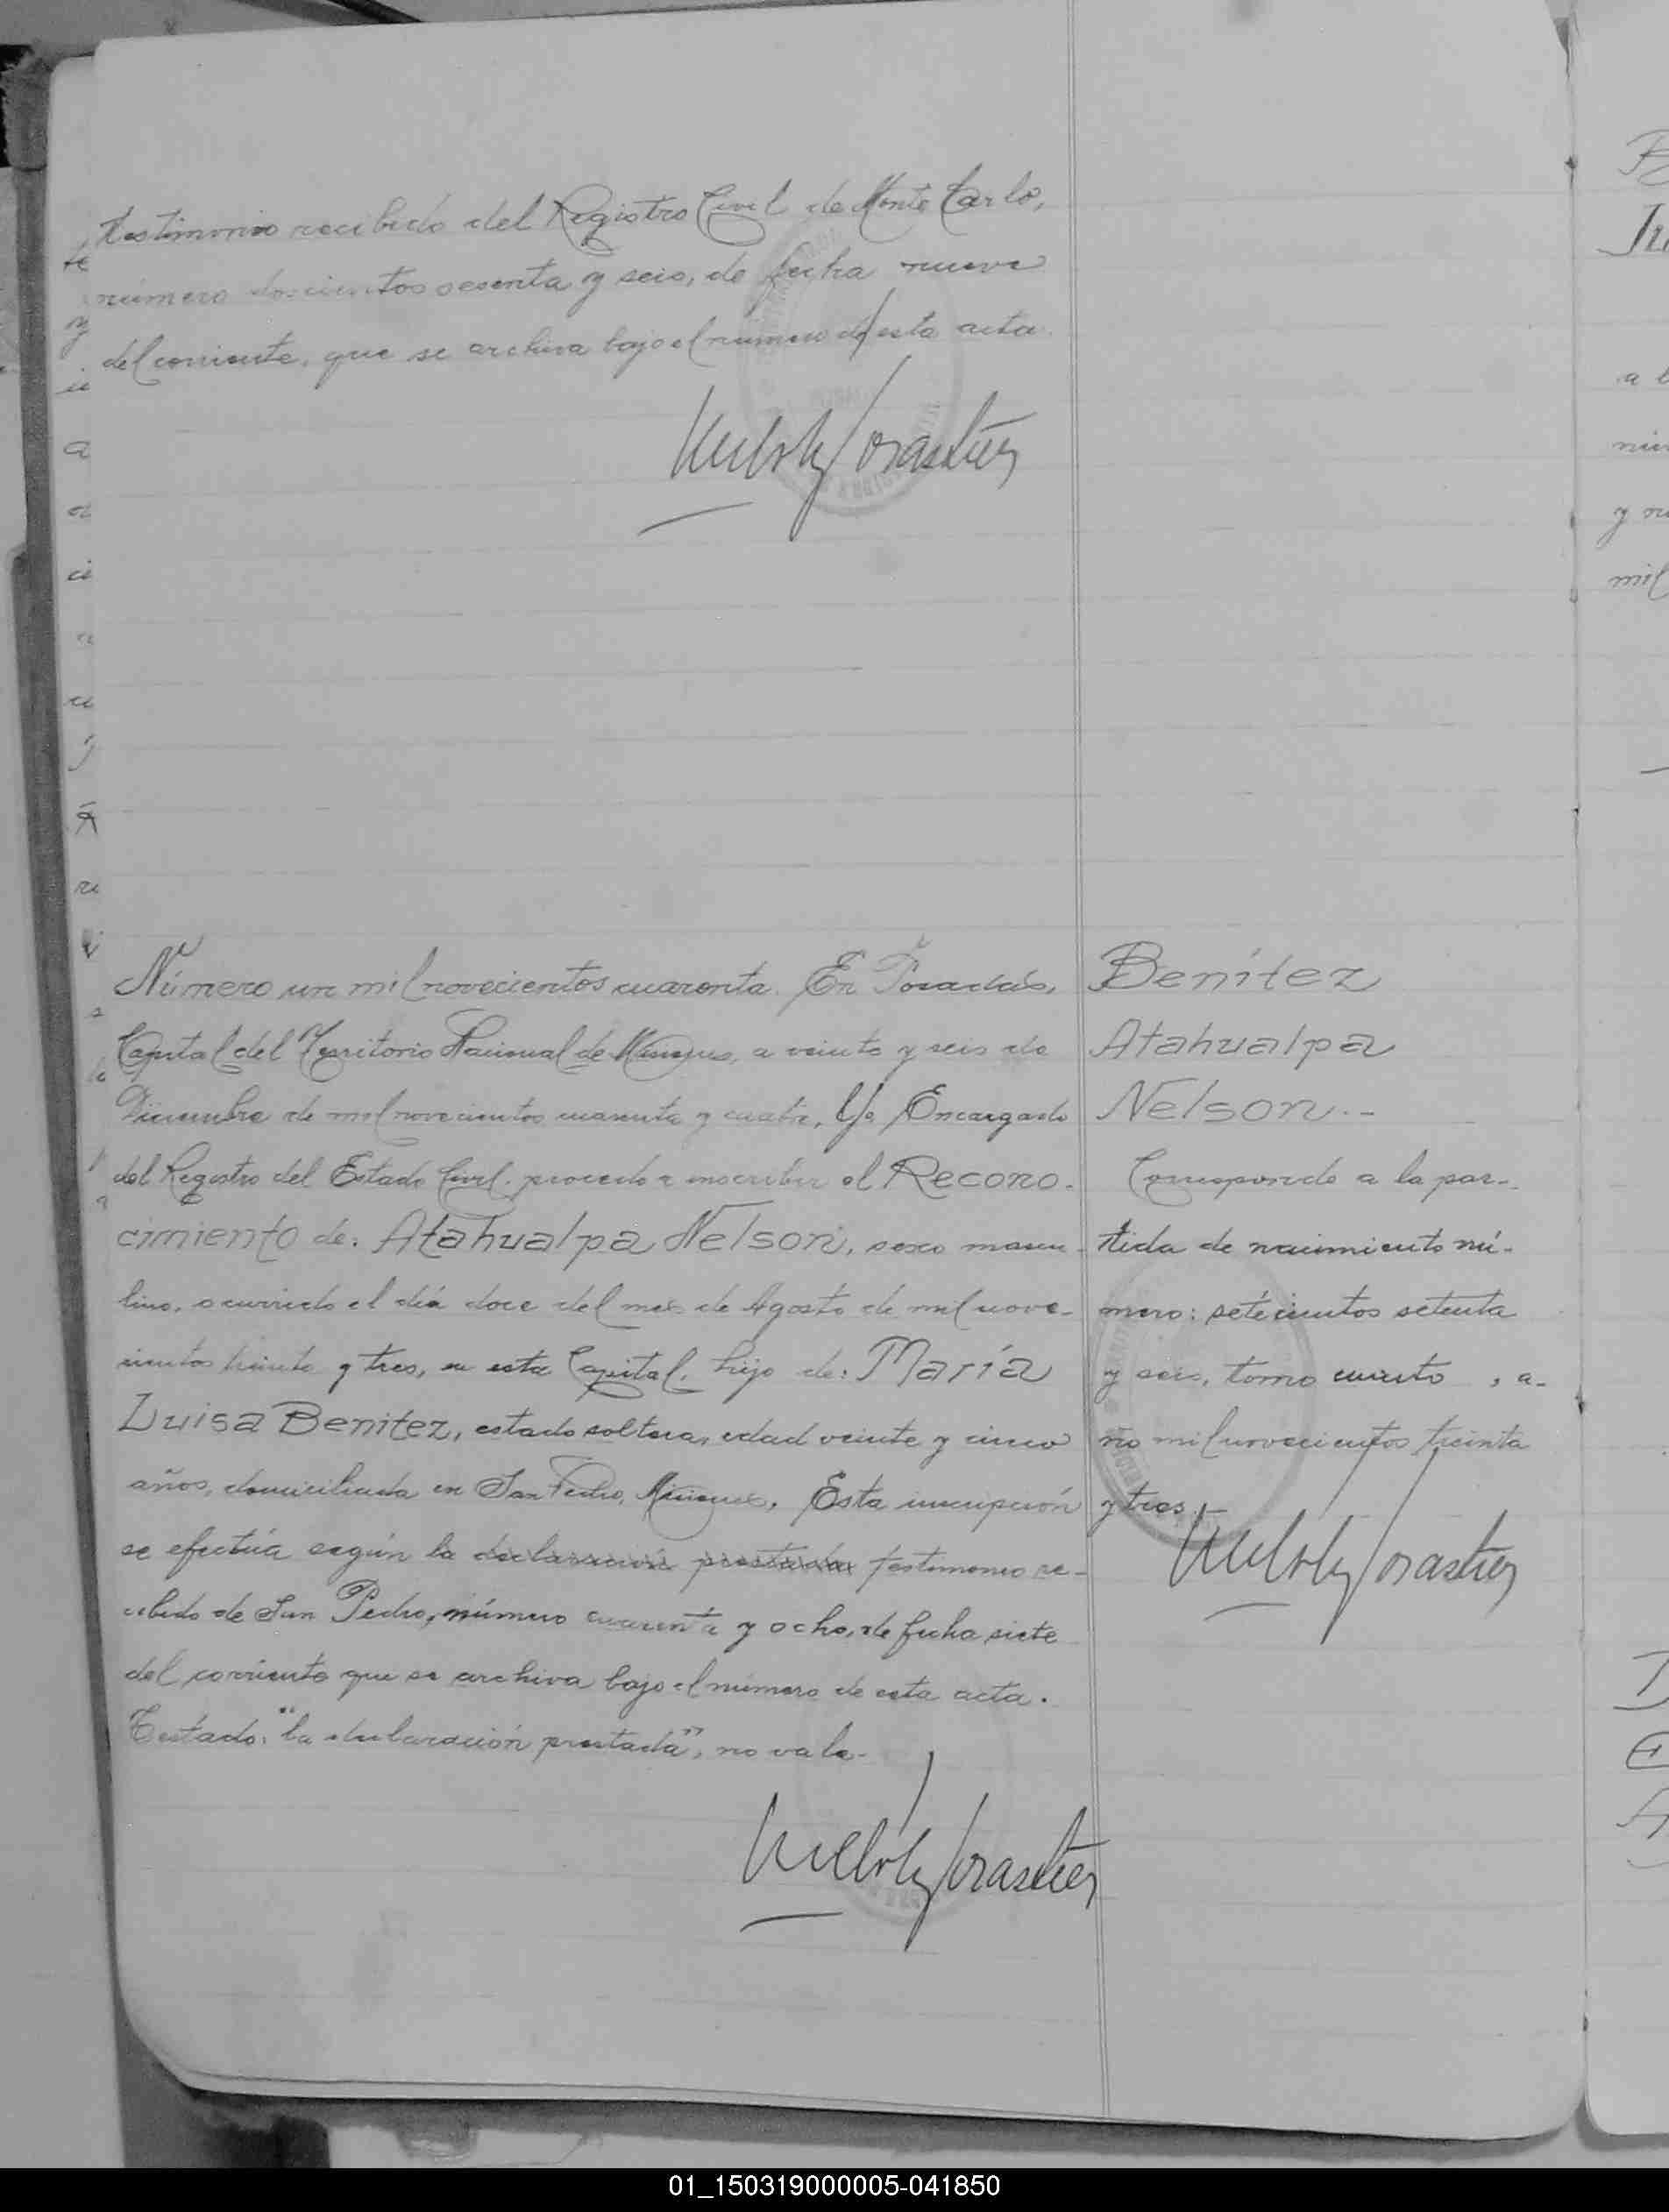 testimonio recibido del Registro Civil de Monte Carlo,
número doscientos sesenta y seis, de fecha nueve
del corriente, que se archiva bajo el número de esta acta.
Número un mil novecientos cuarenta. En Posadas,
Capital del Territorio Nacional de Misiones, a veinte y seis de
Diciembre de mil novecientos cuarenta y cuatro, Yo, Encargado
del Registro del Estado Civil. procedo a inscribir el Recono-
cimiento de: Atahualpa Nelson, sexo mascu-
lino, ocurrido el día doce del mes de Agosto de mil nove-
cientos treinta y tres, en esta Capital, hijo de: María
Luisa Benitez, estado soltera, edad veinte y cinco
años, domiciliada en San Pedro, Misiones. Esta inscripción
se efectúa según la declaración prestada testimonio re-
cibido de San Pedro, número cuarenta y ocho, de fecha siete
del corriente que se archiva bajo el número de esta acta.
Testado: "la declaración prestada", no vale.-
Benítez
Atahualpa
Nelson.--
Corresponde a la par-
tida de nacimiento nú-
mero: setecientos setenta
y seis, tomo cuarto, a-
ño mil novecientos treinta
y tres.-
01_150319000005-041850